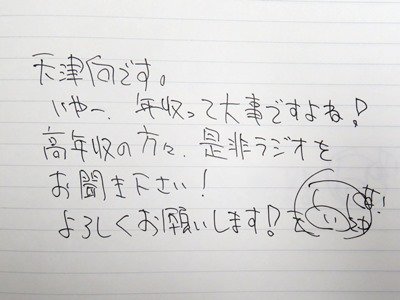 天津向です。
いやー、年収って大事ですよね!
高年収の方々、是非ラジオを
お聞き下さい!
よろしくお願いします!